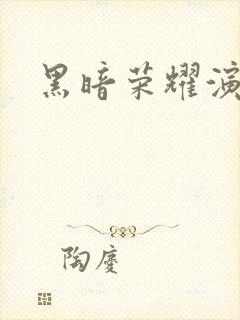 黑暗荣耀演
陶庆